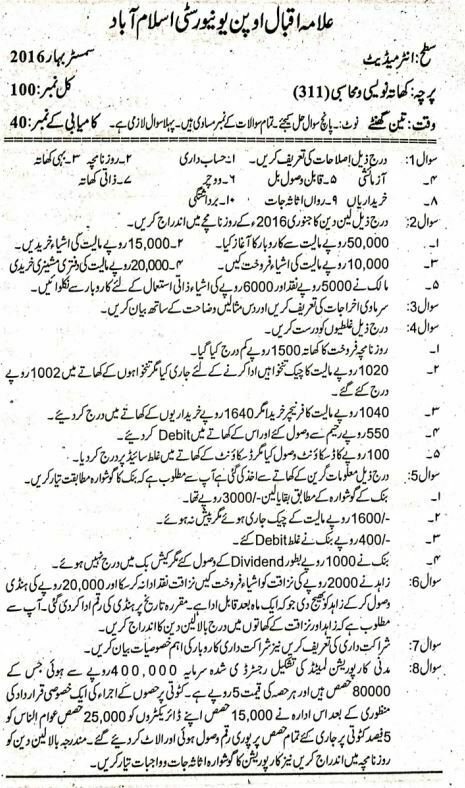 علامہ اقبال اوپن یونیورسٹی اسلام آباد
سطح: انٹرمیڈیٹ سمسٹر بہار 2016
پرچہ: کھاتہ نویسی ومحاسبی (311) کل نمبر: 100
وقت: تین گھنٹے نوٹ: پانچ سوال حل کیجئے۔ تمام سوالات کے نمبر مساوی ہیں۔ پہلا سوال لازمی ہے۔ کامیابی کے نمبر: 40
سوال 1: درج ذیل اصطلاحات کی تعریف کریں۔ ۱۔ حساب داری ۲۔ روزنامچہ ۳۔ بہی کھاتہ
۴۔ آزمائشی ۵۔ قابل وصول بل ۶۔ ووچر ۷۔ ذاتی کھاتہ
۸۔ خریداریاں ۹۔ رواں اثاثہ جات ۱۰۔ برداشتگی
سوال 2: درج ذیل لین دین کا جنوری 2016ء کے روزنامچے میں اندراج کریں۔
۱۔ 50,000 روپے مالیت سے کاروبار کا آغاز کیا۔ ۲۔ 15,000 روپے مالیت کی اشیاء خریدیں۔
۳۔ 10,000 روپے مالیت کی اشیاء فروخت کیں۔ ۴۔ 20,000 روپے مالیت کی دفتری مشینری خریدی
۵۔ مالک نے 5000 روپے نقد اور 6000 روپے کی اشیاء ذاتی استعمال کے لئے کاروبار سے نکلوائیں۔
سوال 3: سرمادی اخراجات کی تعریف کریں اور دس مثالیں وضاحت کے ساتھ بیان کریں۔
سوال 4: درج ذیل غلطیوں کو درست کریں۔
۱۔ روزنامچہ فروخت کا کھاتہ 1500 روپے کم درج کیا گیا۔
۲۔ 1020 روپے مالیت کا چیک تنخواہیں ادا کرنے کے لئے جاری کیا مگر تنخواہوں کے کھاتے میں 1002 روپے
درج کئے گئے۔
۳۔ 1040 روپے مالیت کا فرنیچر خریدا مگر 1640 روپے خریداریوں کے کھاتے میں درج کر دیئے۔
۴۔ 550 روپے رحیم سے وصول کئے اور اس کے کھاتے میں Debit کر دیئے۔
۵۔ 100 روپے کا ڈسکاؤنٹ وصول کیا مگر ڈسکاؤنٹ کے کھاتے میں غلط سائیڈ پر درج کر دیا۔
سوال 5: درج ذیل معلومات گرین کے کھاتے سے اخذ کی گئی ہے آپ سے مطلوب ہے کہ بنک کا گوشوارہ مطابقت تیار کریں۔
۱۔ بنک کے گوشوارہ کے مطابق بقایا لین -/3000 روپے تھا۔
۲۔ -/1600 روپے مالیت کے چیک جاری ہوئے مگر پیش نہ ہوئے۔
۳۔ -/400 روپے بنک نے غلط Debit کئے۔
۴۔ بنک نے 1000 روپے بطور Dividend کے وصول کئے مگر کیش بک میں درج نہیں ہوئے۔
سوال 6: زاہد نے 2000 روپے کی نزاقت کو اشیاء فروخت کیں نزاقت نقد ادا نہ کر سکا اور 20,000 روپے کی ہنڈی
وصول کر کے زاہد کو بھیج دی جو کہ ایک ماہ بعد قابل ادا ہے۔ مقررہ تاریخ پر ہنڈی کی رقم ادا کر دی گئی۔ آپ سے
مطلوب ہے کہ زاہد اور نزاقت کے کھاتوں میں درج بالا لین دین کا اندراج کریں۔
سوال 7: شراکت داری کی تعریف کریں نیز شراکت داری کاروبار کی اہم خصوصیات بیان کریں۔
سوال 8: مدنی کارپوریشن لمیٹڈ کی تشکیل رجسٹرڈی شدہ سرمایہ 400,000 روپے سے ہوئی جس کے
80000 حصص ہیں اور ہر حصہ کی قیمت 5 روپے ہے۔ کٹوتی پر حصوں کے اجراء کی ایک خصوصی قرارداد کی
منظوری کے بعد اس ادارہ نے 15,000 حصص اپنے ڈائریکٹروں کو 25,000 حصص عوام الناس کو
5 فیصد کٹوتی پر جاری کئے تمام حصص پر پوری رقم وصول ہوئی اور الاٹ کر دیئے گئے۔ مندرجہ بالا لین دین کو
روزنامچہ میں اندراج کریں نیز کارپوریشن کا گوشوارہ اثاثہ جات و واجبات تیار کریں۔